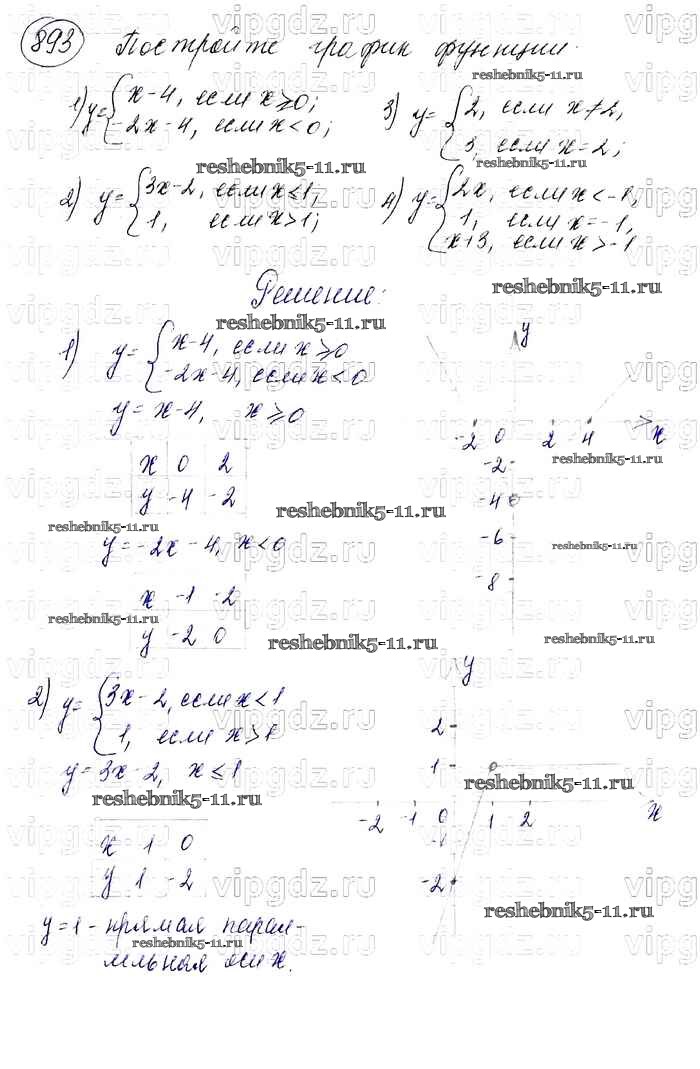 893 Постройте график функции.
1) y = { x-4, если x ⩾ 0;
-2x-4, если x < 0;
3) y = { 2, если x ≠ 2,
3, если x = 2;
2) y = { 3x-2, если x ≤ 1,
1, если x > 1;
4) y = { 2x, если x < -1,
1, если x = -1,
x+3, если x > -1
Решение:
1) y = { x-4, если x ⩾ 0
-2x-4, если x < 0
y = x-4, x ⩾ 0
x 0 2
y -4 -2
y = -2x - 4, x < 0
x -1 -2
y -2 0
y
-2 0 2 4 x
-2
-4
-6
-8
2) y = { 3x-2, если x < 1
1, если x > 1
y = 3x-2, x ≤ 1
x 1 0
y 1 -2
y = 1 - прямая парал-
лельная оси x.
y
2
1
-2 -1 0 1 2 x
-1
-2
reshebnik5-11.ru
vipgdz.ru